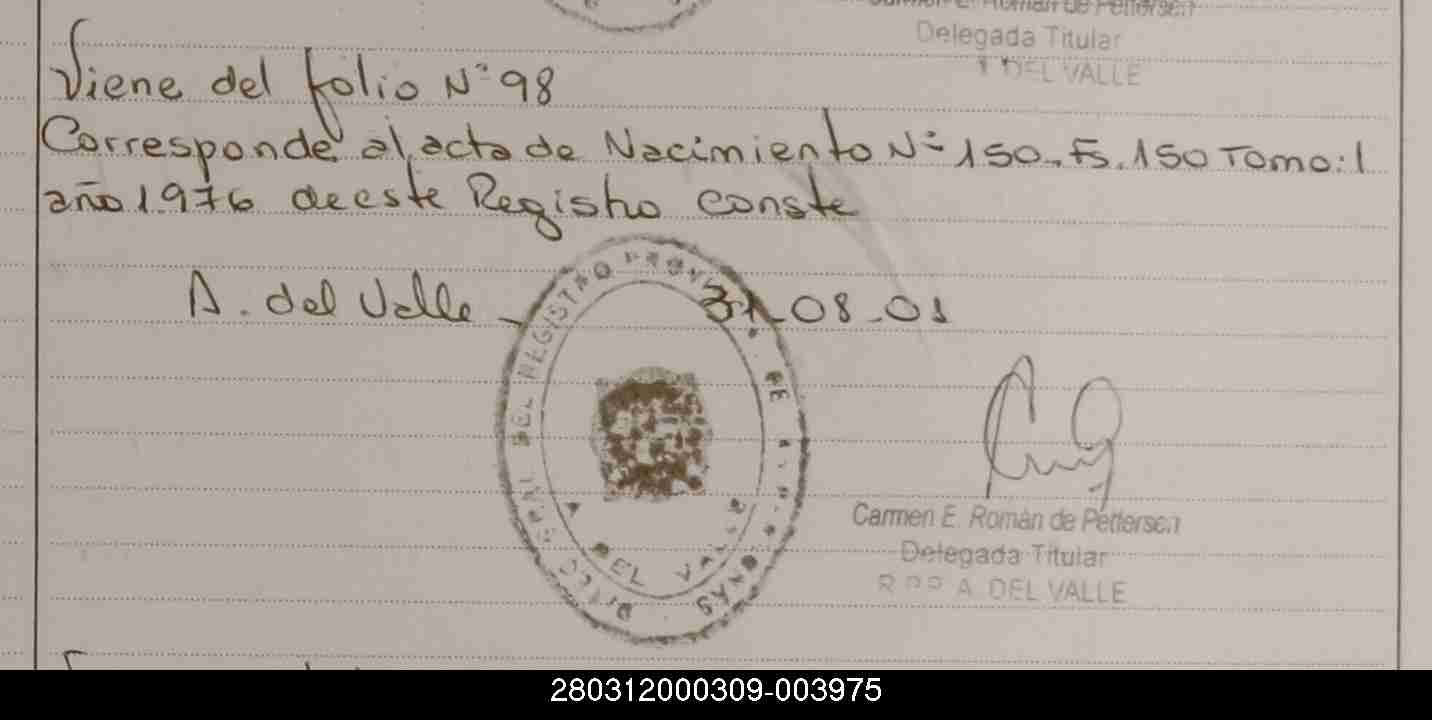 Delegada Titular
DEL VALLE
Viene del folio N° 98
Corresponde al acta de Nacimiento N° 150. Fs. 150 Tomo: 1
año 1976 de este Registro conste
A. del Valle - 31-08-01
DEL REGISTRO
A. DEL VALLE
Carmen E. Román de Pettersen
Delegada Titular
A. DEL VALLE
280312000309-003975